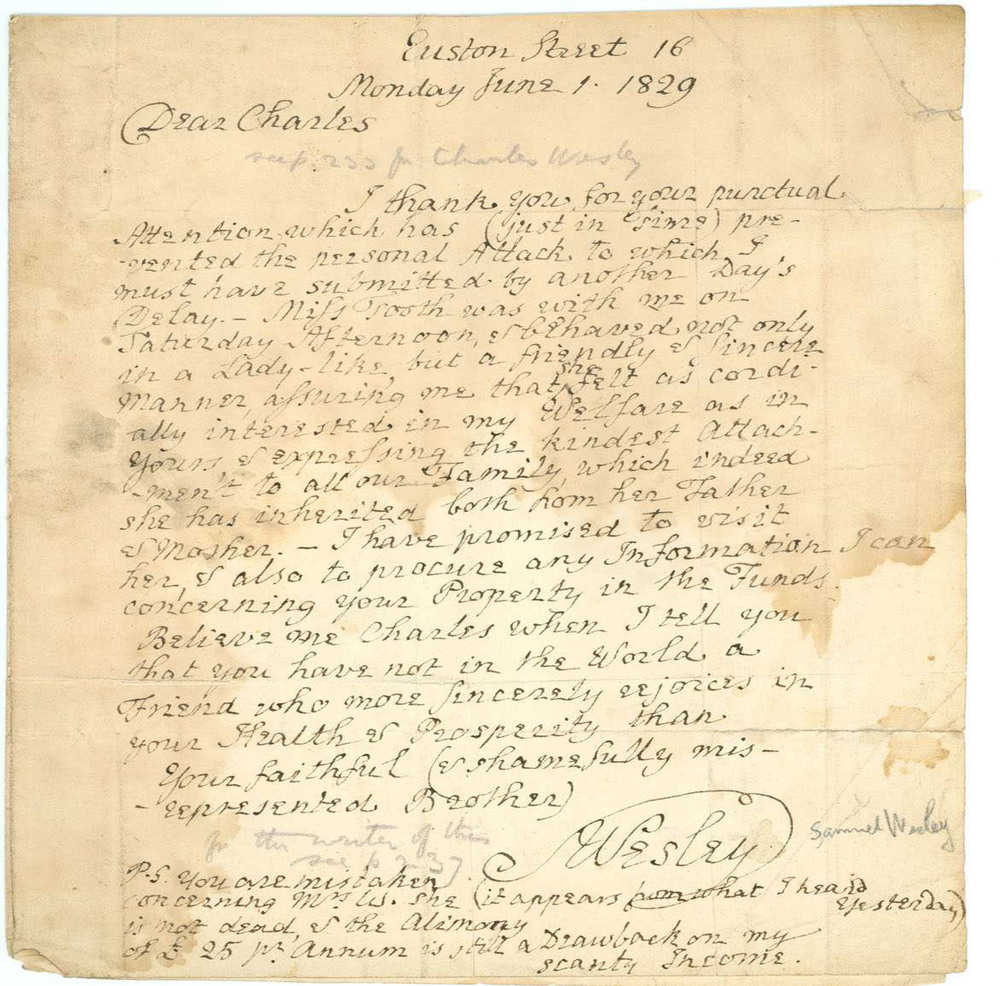 Euston Street 16
Monday June 1. 1829
Dear Charles
see p. 233 for Charles Wesley
I thank you for your punctual
Attention which has (just in Time) pre-
-vented the personal Attack to which I
must have submitted by another Day's
Delay. — Miss Tooth was with me on
Saturday Afternoon, & behaved not only
in a Lady-like, but a friendly & sincere
Manner, assuring me that she felt as cordi-
ally interested in my Welfare as in
Yours & expressing the kindest Attach-
-ment to all our Family which indeed
she has inherited both from her Father
& Mother. — I have promised to visit
her, & also to procure any Information I can
concerning your Property in the Funds.
Believe me Charles when I tell you
that you have not in the World a
Friend who more sincerely rejoices in
your Health & Prosperity than
Your faithful (& shamefully mis-
-represented Brother)
SWesley
Samuel Wesley
for the writer of this
see p 237
P.S. You are mistaken
concerning Mrs W. she (it appears from what I heard
Yesterday)
is not dead, & the Alimony
of £ 25 pr. Annum is still a Drawback on my
scanty Income.